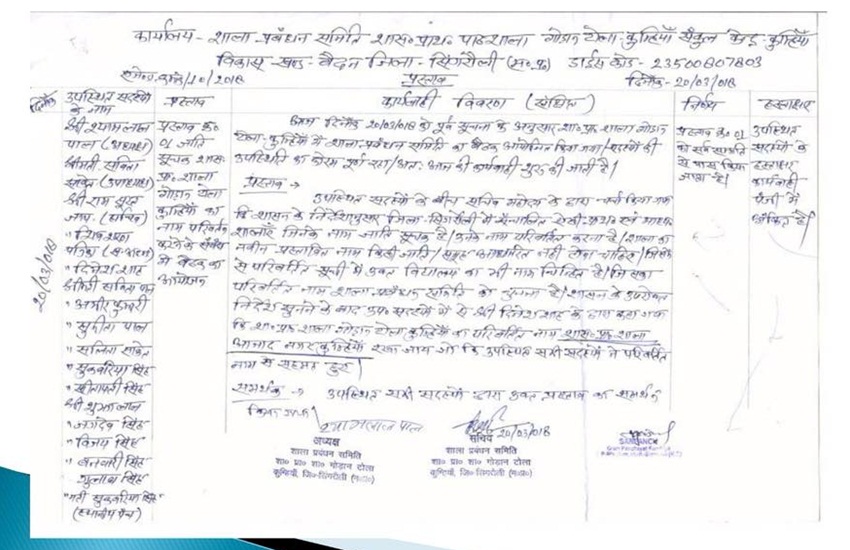 कार्यालय - शाला प्रबंधन समिति शास० प्राथ० पाठशाला गोडान टोला - कुम्हियाँ संकुल केन्द्र - कुम्हियाँ
विकास खण्ड - बैढन जिला - सिंगरौली (म० प्र०) डाईस कोड - 23500807803
/10/2018 प्रस्ताव दिनाँक - 20/03/018
दिनाँक उपस्थित सदस्यों के नाम प्रस्ताव कार्यवाही विवरण (संक्षिप्त) निर्णय हस्ताक्षर
20/03/018
श्री श्यामलाल
पाल (अध्यक्ष)
श्रीमती सविता
साकेत (उपाध्यक्ष)
श्री राम सूरत
(सचिव)
" दिनेश शाह
श्रीमती सविता पाल
" सुनीता पाल
" ललिता साकेत
" सुकवरिया सिंह
" जगदेव सिंह
" विजय सिंह
" बनवारी सिंह
गुलाब सिंह
(स्थानीय पंच)
प्रस्ताव क्र० 01 जाति
सूचक शास०
प्रा० शाला
गोडान टोला
कुम्हियाँ का
नाम परिवर्तन
करने के संबंध
में बैठक का
आयोजन
आज दिनाँक 20/03/018 को पूर्व सूचना के अनुसार शा० प्रा० शाला गोडान
टोला - कुम्हियाँ में शाला प्रबंधन समिति का बैठक आयोजित किया गया / सदस्यों की
उपस्थिति का कोरम पूर्ण रहा / अतः आज की कार्यवाही शुरू की जाती है /
प्रस्ताव →
उपस्थित सदस्यों के बीच सचिव महोदय के द्वारा चर्चा किया गया
कि शासन के निर्देशानुसार जिला सिंगरौली में संचालित ऐसी प्राथ० एवं माध्य०
शालाएँ जिनके नाम जाति सूचक है / उनके नाम परिवर्तित करना है / शाला का
नवीन प्रस्तावित नाम किसी जाति / समूह आधारित नहीं होना चाहिए /
से परिवर्तित सूची में उक्त विद्यालय का भी नाम चिन्हित है / जिसका
परिवर्तित नाम शाला प्रबंधन समिति को चुनना है / शासन के उपरोक्त
निर्देश सुनने के बाद उप० सदस्यों में से श्री दिनेश शाह के द्वारा कहा गया
कि शा० प्रा० शाला गोडान टोला कुम्हियाँ का परिवर्तित नाम शास० प्रा० शाला
आजाद नगर कुम्हियाँ रखा जाय जो कि उपस्थित सभी सदस्यों ने परिवर्तित
नाम से सहमत हुए /
समर्थक → उपस्थित सभी सदस्यों द्वारा उक्त प्रस्ताव का समर्थन
किया गया /
प्रस्ताव क्र० 01
को सर्व सम्मति
से पास किया
जाता है /
उपस्थित
सदस्यों के
हस्ताक्षर
कार्यवाही
पंजी में
अंकित है /
श्यामलाल पाल
20/03/018
अध्यक्ष
शाला प्रबंधन समिति
शा० प्रा० शा० गोडान टोला
कुम्हियाँ, जि०-सिंगरौली (म०प्र०)
सचिव
शाला प्रबंधन समिति
शा० प्रा० शा० गोडान टोला
कुम्हियाँ, जि०-सिंगरौली (म०प्र०)
SARPANCH